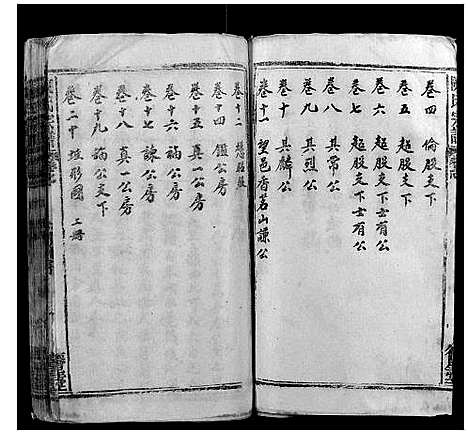 卷四 倫股支下
卷五 超股支下
卷六 超股支下士有公
卷七 超股支下士有公
卷八 其常公
卷九 其烈公
卷十 其麟公
卷十一 望邑香茗山謙公
卷十二
卷十四 鑑公房
卷十五 真一公房
卷十六 福公房
卷十七 諫公房
卷十八 真一公房
卷十九 福公支下
卷二十 墳形圖 二冊